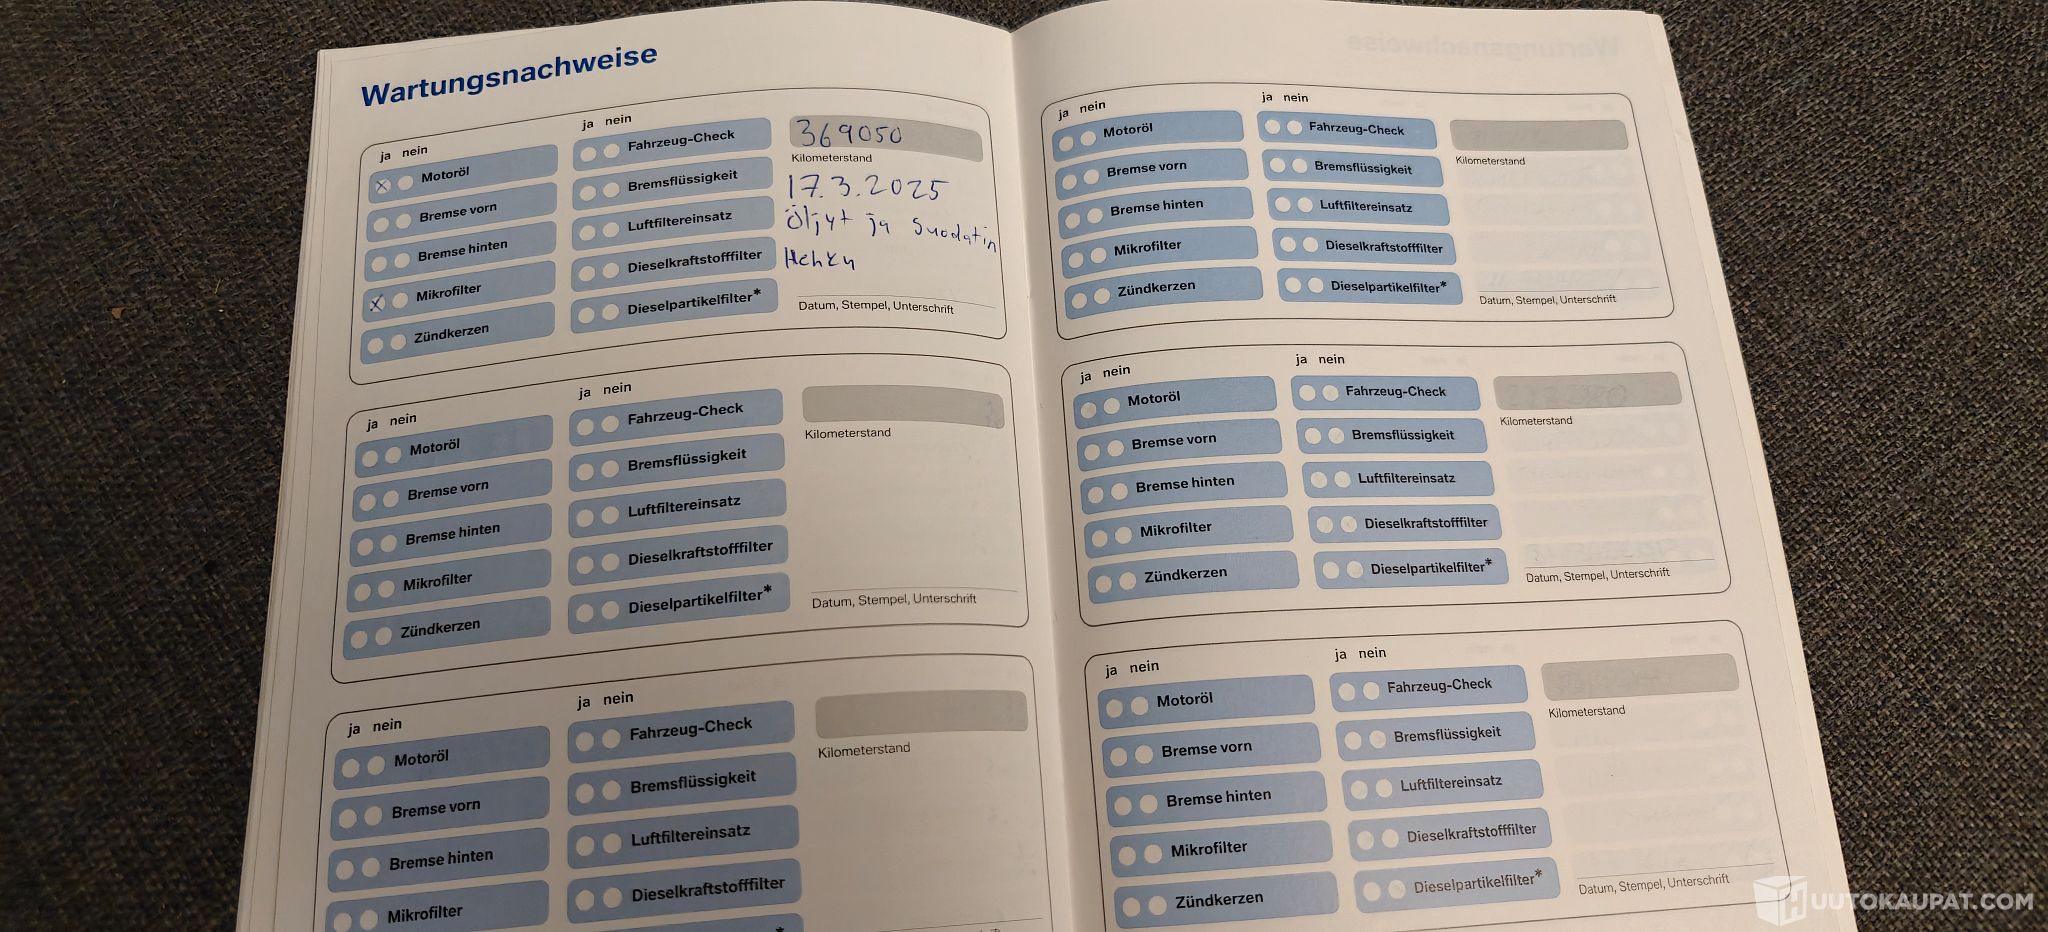 Wartungsnachweise
ja nein
Motoröl
Bremse vorn
Bremse hinten
Mikrofilter
Zündkerzen
ja nein
Fahrzeug-Check
Bremsflüssigkeit
Luftfiltereinsatz
Dieselkraftstofffilter
Dieselpartikelfilter*
369050
Kilometerstand
17.3.2025
Öljyt ja suodatin
Datum, Stempel, Unterschrift
ja nein
Motoröl
Bremse vorn
Bremse hinten
Mikrofilter
Zündkerzen
ja nein
Fahrzeug-Check
Bremsflüssigkeit
Luftfiltereinsatz
Dieselkraftstofffilter
Dieselpartikelfilter*
Kilometerstand
Datum, Stempel, Unterschrift
ja nein
Motoröl
Bremse vorn
Bremse hinten
Mikrofilter
ja nein
Fahrzeug-Check
Bremsflüssigkeit
Luftfiltereinsatz
Dieselkraftstofffilter
*
Kilometerstand
ja nein
Motoröl
Bremse vorn
Bremse hinten
Mikrofilter
Zündkerzen
ja nein
Fahrzeug-Check
Bremsflüssigkeit
Luftfiltereinsatz
Dieselkraftstofffilter
Dieselpartikelfilter*
Kilometerstand
Datum, Stempel, Unterschrift
ja nein
Motoröl
Bremse vorn
Bremse hinten
Mikrofilter
Zündkerzen
ja nein
Fahrzeug-Check
Bremsflüssigkeit
Luftfiltereinsatz
Dieselkraftstofffilter
Dieselpartikelfilter*
Kilometerstand
Datum, Stempel, Unterschrift
ja nein
Motoröl
Bremse vorn
Bremse hinten
Mikrofilter
Zündkerzen
ja nein
Fahrzeug-Check
Bremsflüssigkeit
Luftfiltereinsatz
Dieselkraftstofffilter
Dieselpartikelfilter*
Kilometerstand
Datum, Stempel, Unterschrift
HUUTOKAUPAT.COM